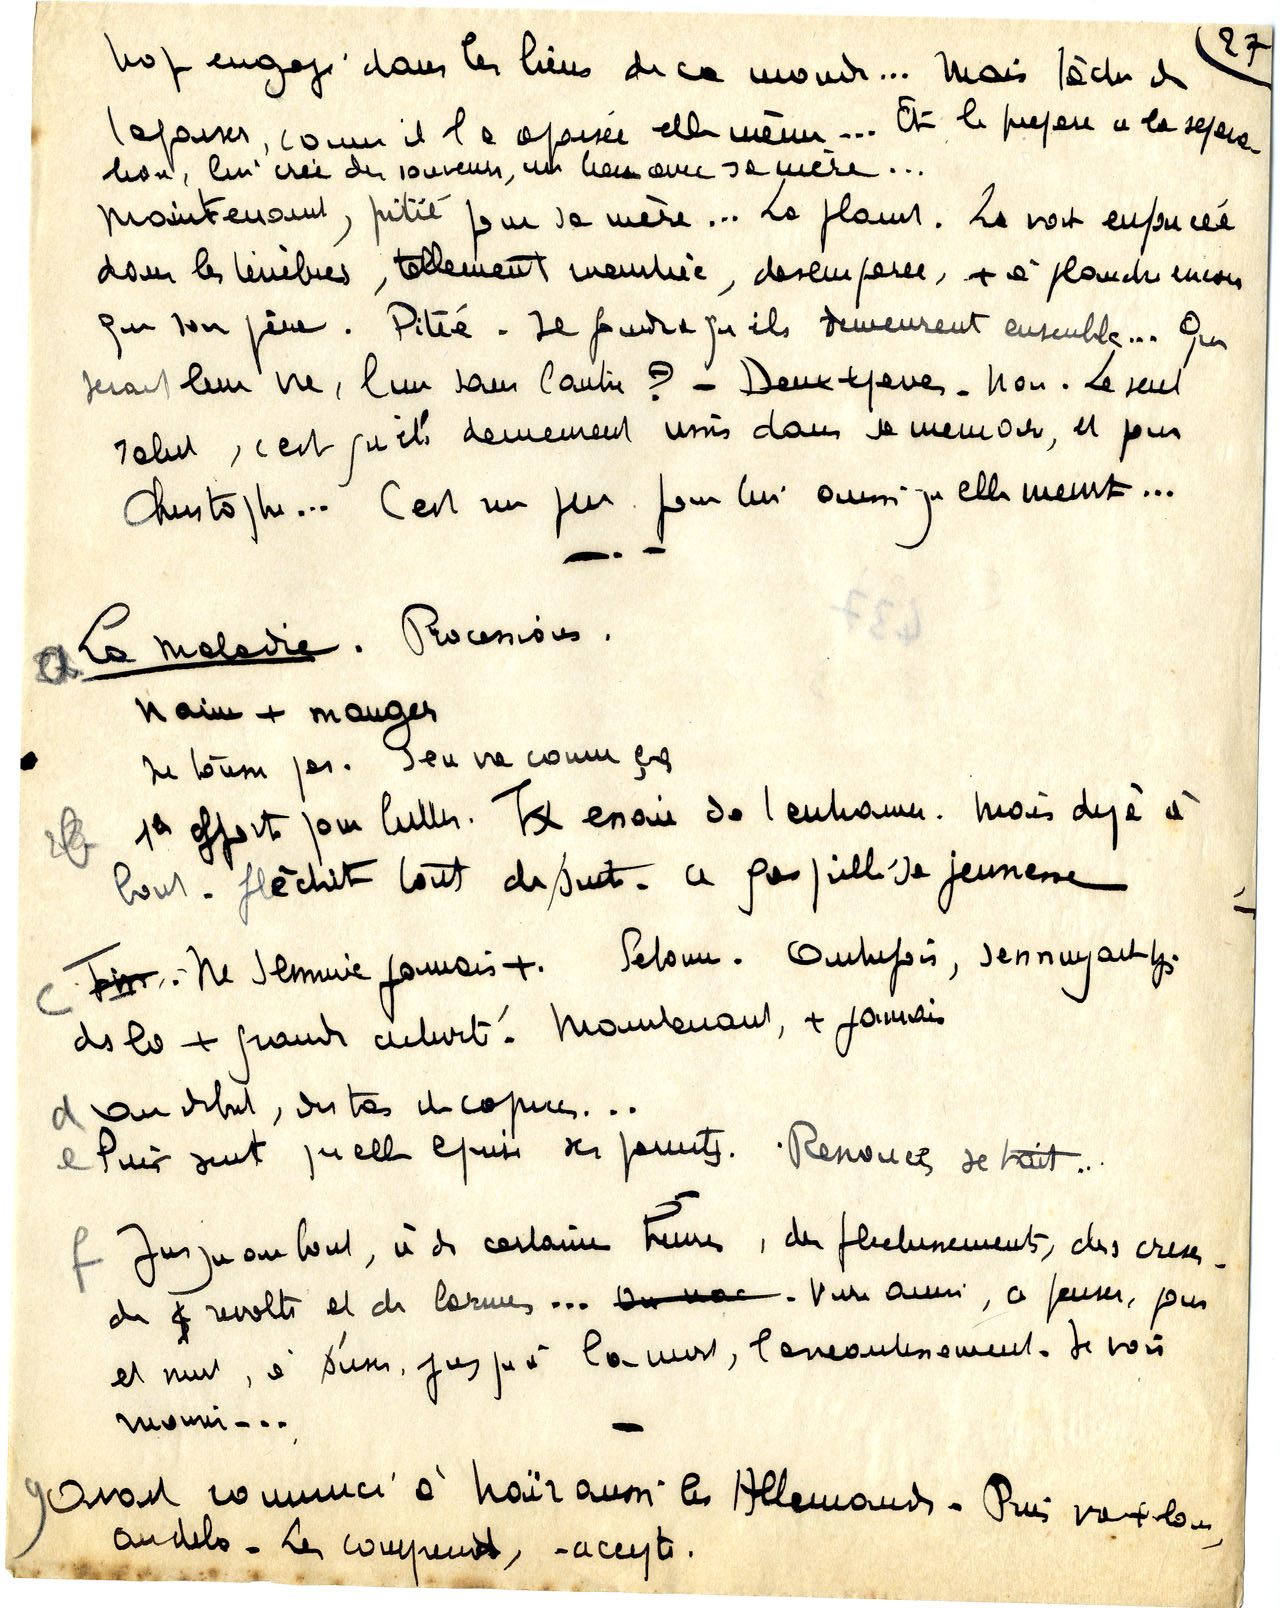 27
trop engagé dans les liens de ce monde... Mais tâche de
l'apaiser, comme il l'a apaisée elle même... Et le prépare à la sépara-
tion, lui crée des souvenirs, un lien avec sa mère...
Maintenant, pitié pour sa mère... La plaint. La voit enfoncée
dans les ténèbres, tellement, désemparée, + à plaindre encore
que son père. Pitié. Il faudra qu'ils demeurent ensemble... Que
serait leur vie, l'un sans l'autre ? - Non. Le seul
salut, c'est qu'ils demeurent unis dans sa mémoire, et pour
Christophe... C'est un peu pour lui aussi qu'elle meurt...
a La Maladie. Processions.
+ manger
pas. S'en va comme ça
b 1er efforts pour lutter. Tx essaie de l'entraîner. Mais déjà à
bout. Fléchit tout de suite. A gaspillé sa jeunesse
c Ne s'ennuie jamais +. Autrefois, s'ennuyait
de la + grande. Maintenant, + jamais
d Au début, des tas de caprices...
e Puis sent qu'elle épuise ses parents. Renonce, se tait...
f Jusqu'au bout, à de certaines heures, des fléchissements, des crises
de révolte et de larmes... Vivre ainsi, à penser, jour
et nuit, à s'user, jusqu'à la mort, l'anéantissement. Se voir
mourir...
g Avait commencé à haïr aussi les Allemands. Puis va + loin,
au delà. Les comprend, accepte.